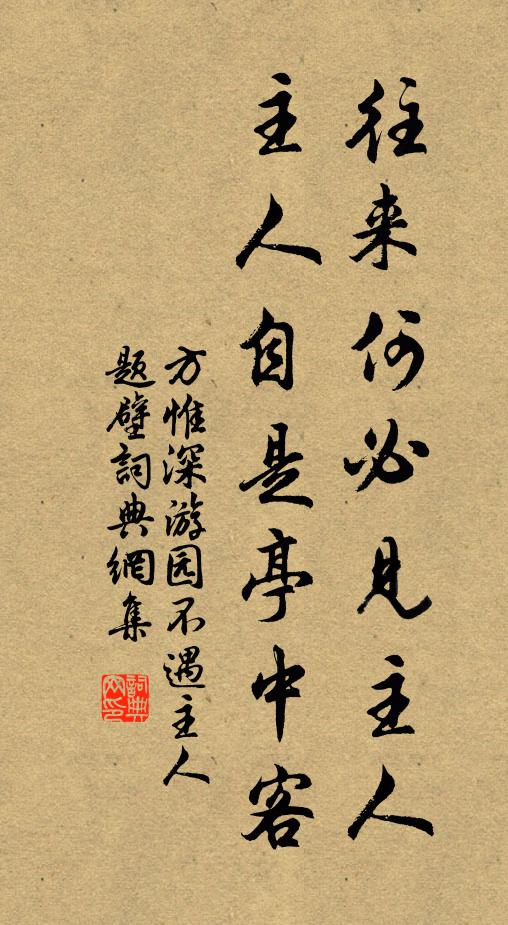 往来何必見主人
主人自是亭中客
方惟深游园不遇主人
题壁詞典網集
詞典网印